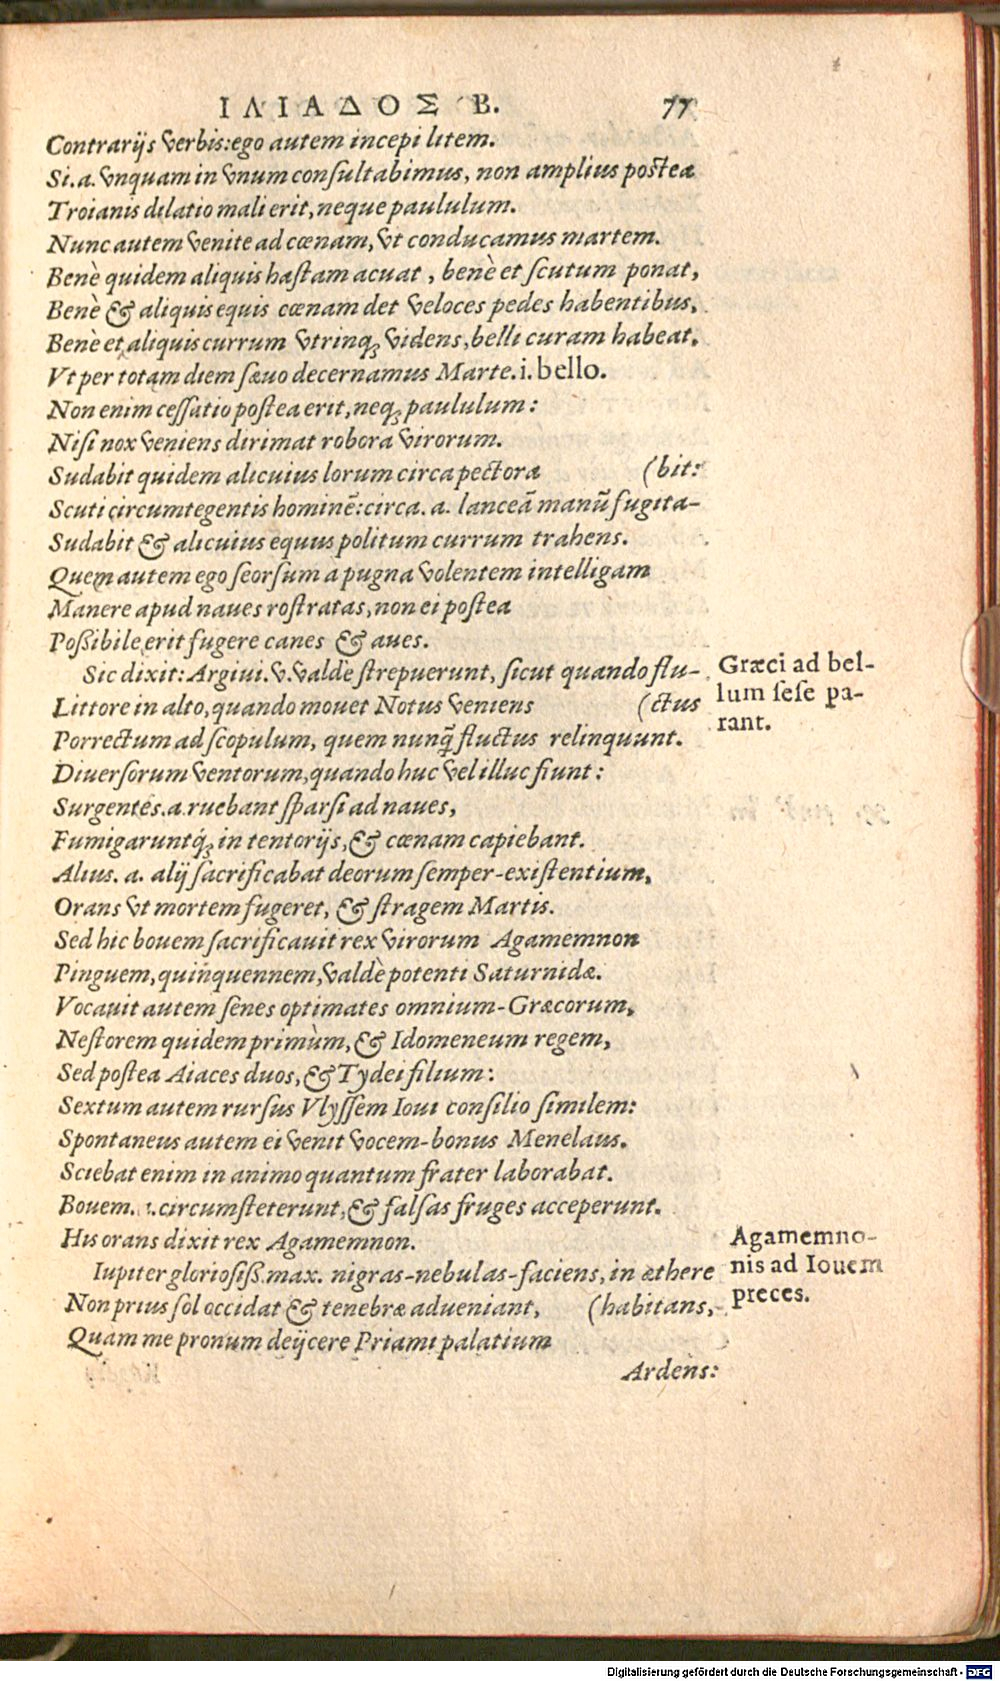 ΙΛΙΑΔΟΣ Β. 77
Contrarijs verbis: ego autem incepi litem.
Si. a. vnquam in vnum consultabimus, non amplius postea
Troianis dilatio mali erit, neque paululum.
Nunc autem venite ad cœnam, vt conducamus martem.
Benè quidem aliquis hastam acuat, benè et scutum ponat,
Benè & aliquis equis cœnam det veloces pedes habentibus,
Benè et aliquis currum vtrinq; videns, belli curam habeat.
Vt per totam diem sæuo decernamus Marte. i. bello.
Non enim cessatio postea erit, neq; paululum:
Nisi nox veniens dirimat robora virorum.
Sudabit quidem alicuius lorum circa pectora (bit:
Scuti circumtegentis hominẽ: circa. a. lanceã manũ fugita-
Sudabit & alicuius equus politum currum trahens.
Quem autem ego seorsum a pugna volentem intelligam
Manere apud naues rostratas, non ei postea
Poßibile erit fugere canes & aues.
Sic dixit: Argiui. v. valdè strepuerunt, sicut quando flu-
Littore in alto, quando mouet Notus veniens (ctus
Porrectum ad scopulum, quem nunq̃ fluctus relinquunt.
Diuersorum ventorum, quando huc vel illuc fiunt:
Surgentes. a. ruebant sparsi ad naues,
Fumigaruntq́; in tentorijs, & cœnam capiebant.
Alius. a. alij sacrificabat deorum semper-existentium,
Orans vt mortem fugeret, & stragem Martis.
Sed hic bouem sacrificauit rex virorum Agamemnon
Pinguem, quinquennem, valdè potenti Saturnidæ.
Vocauit autem senes optimates omnium-Græcorum,
Nestorem quidem primùm, & Idomeneum regem,
Sed postea Aiaces duos, & Tydei filium:
Sextum autem rursus Vlyssem Ioui consilio similem:
Spontaneus autem ei venit vocem-bonus Menelaus.
Sciebat enim in animo quantum frater laborabat.
Bouem. v. circumsteterunt, & falsas fruges acceperunt.
His orans dixit rex Agamemnon.
Iupiter gloriosiß. max. nigras-nebulas-faciens, in æthere
Non prius sol occidat & tenebræ adueniant, (habitans,
Quam me pronum deijcere Priami palatium
Ardens:
Græci ad bel-
lum sese pa-
rant.
Agamemno-
nis ad Iouem
preces.
Digitalisierung gefördert durch die Deutsche Forschungsgemeinschaft - DFG